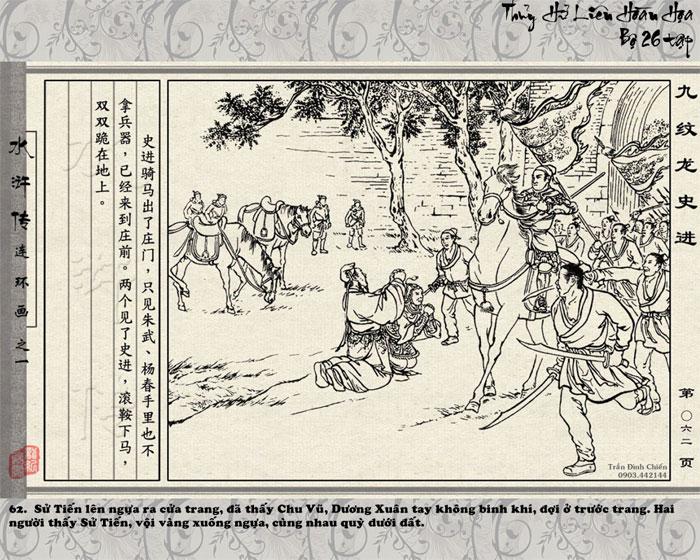 Thủy Hử Liên Hoàn Họa
Bộ 26 tập
九纹龙史进
第〇六二页
史进骑马出了庄门，只见朱武、杨春手里也不
拿兵器，已经来到庄前。两个见了史进，滚鞍下马，
双双跪在地上。
水浒传连环画之一
Trần Đình Chiến
0903.442144
62. Sử Tiến lên ngựa ra cửa trang, đã thấy Chu Vũ, Dương Xuân tay không binh khí, đợi ở trước trang. Hai
người thấy Sử Tiến, vội vàng xuống ngựa, cùng nhau quỳ dưới đất.